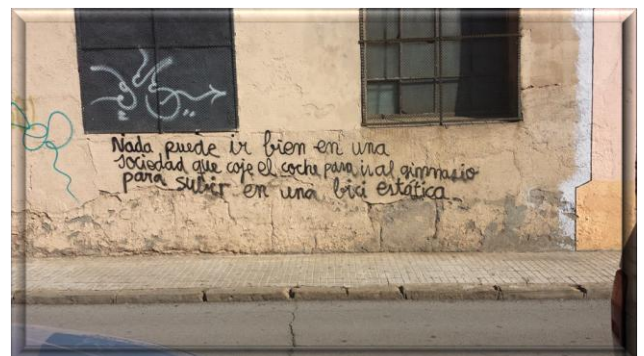 Nada puede ir bien en una
sociedad que coje el coche para ir al gimnasio
para subir en una bici estática